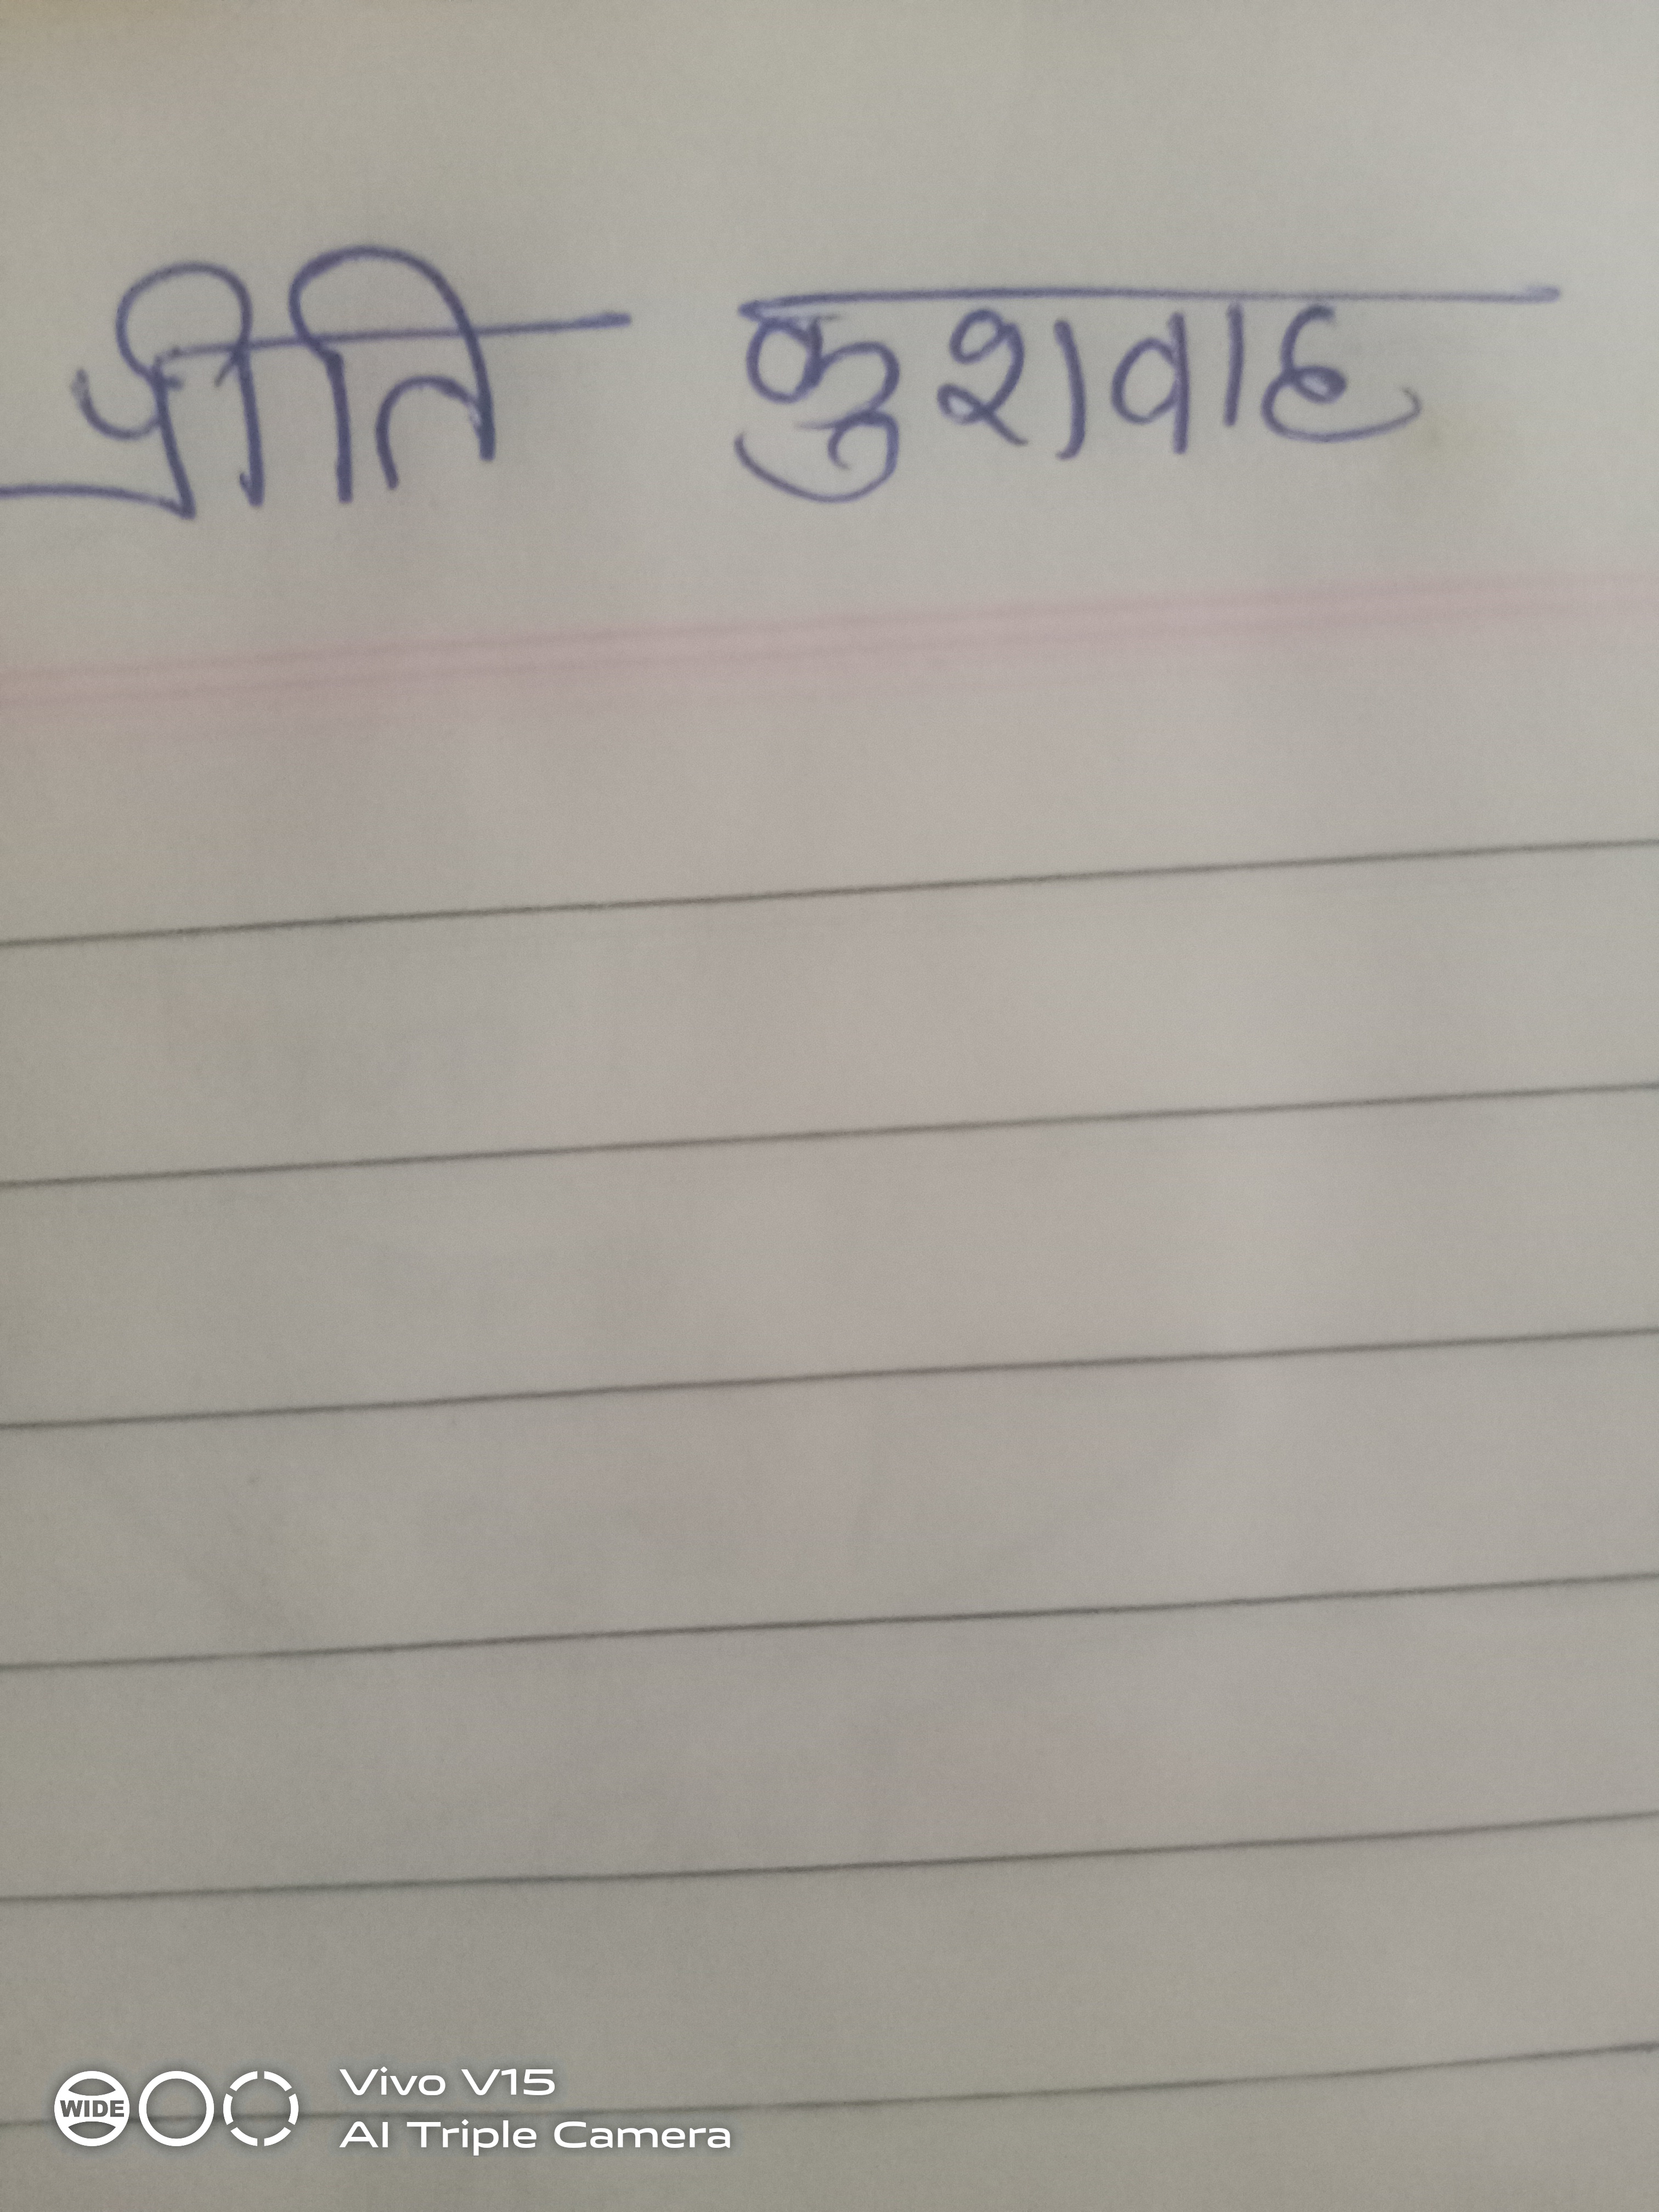 प्रीति कुशवाह
WIDE
Vivo V15
AI Triple Camera